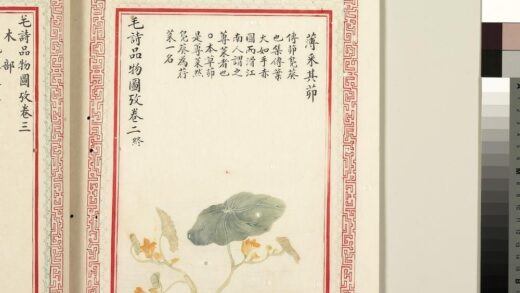 薄采其茆
傳茆鳧葵
也集傳葉
大如手赤
圓而滑江
南人謂之
蓴菜者也
○本草茆
是蓴菜然
鳧葵為荇
菜一名
毛詩品物圖攷卷二終
毛詩品物圖攷卷三
木部